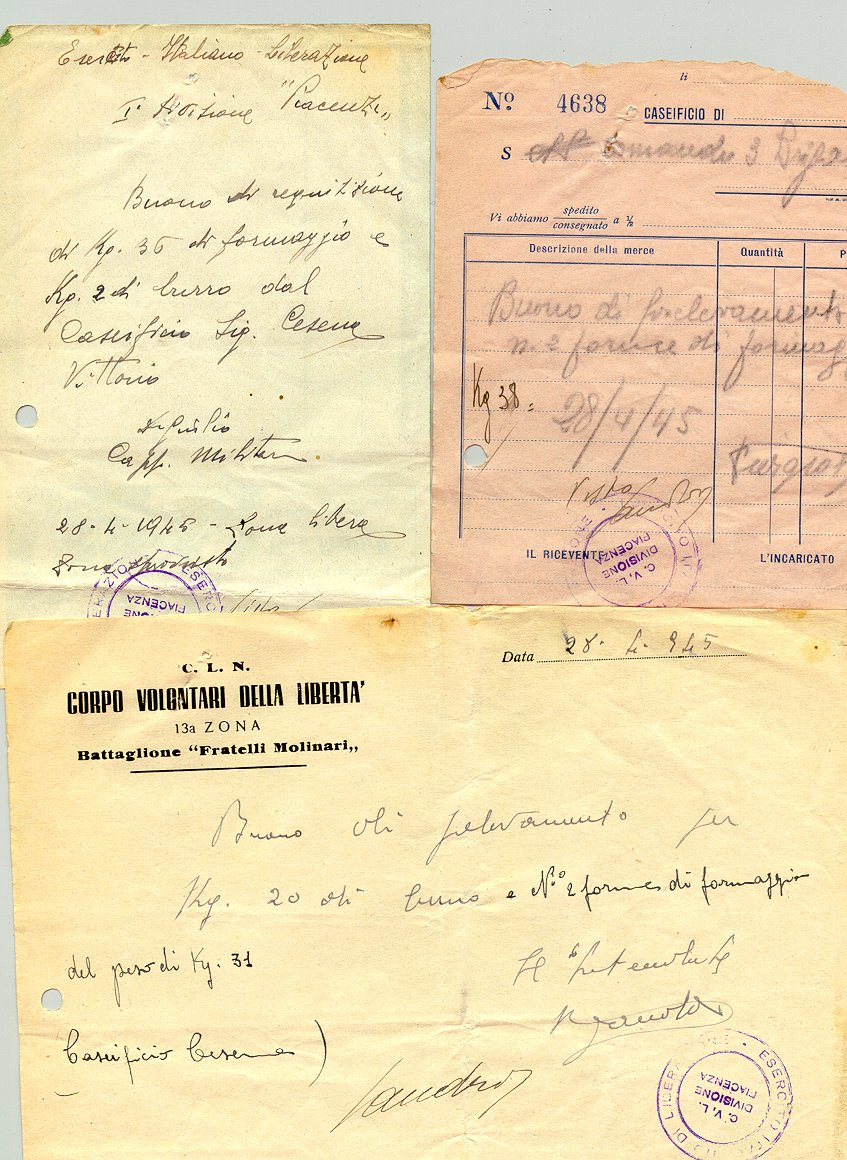 Esercito - Italiano - Liberazione
Iª Divisione "Piacenza"
Buono di requisizione
di Kg. 36 di formaggio e
Kg. 2 di burro dal
Caseificio Sig. Cesena
Vittorio
Capp. Militare
28-4-1945 - Zona libera
Zona
C. V. L.
DIVISIONE
PIACENZA
li
Nº 4638 CASEIFICIO DI
S comando 3
Vi abbiamo spedito consegnato a ½
Descrizione della merce Quantità P
Buono di prelevamento
n. 2 forme di formag
Kg 38 =
28/4/45
Visto
Sandro
IL RICEVENTE L'INCARICATO
C. V. L.
DIVISIONE
PIACENZA
C. L. N.
CORPO VOLONTARI DELLA LIBERTA'
13a ZONA
Battaglione "Fratelli Molinari„
Data 28-4-945
Buono di prelevamento per
Kg. 20 di burro e N.º 2 formes di formaggio
del peso di Kg. 31
Caseificio Cesena )
Sandro
ESERCITO ITALIANO DI LIBERAZIONE
C. V. L.
DIVISIONE
PIACENZA